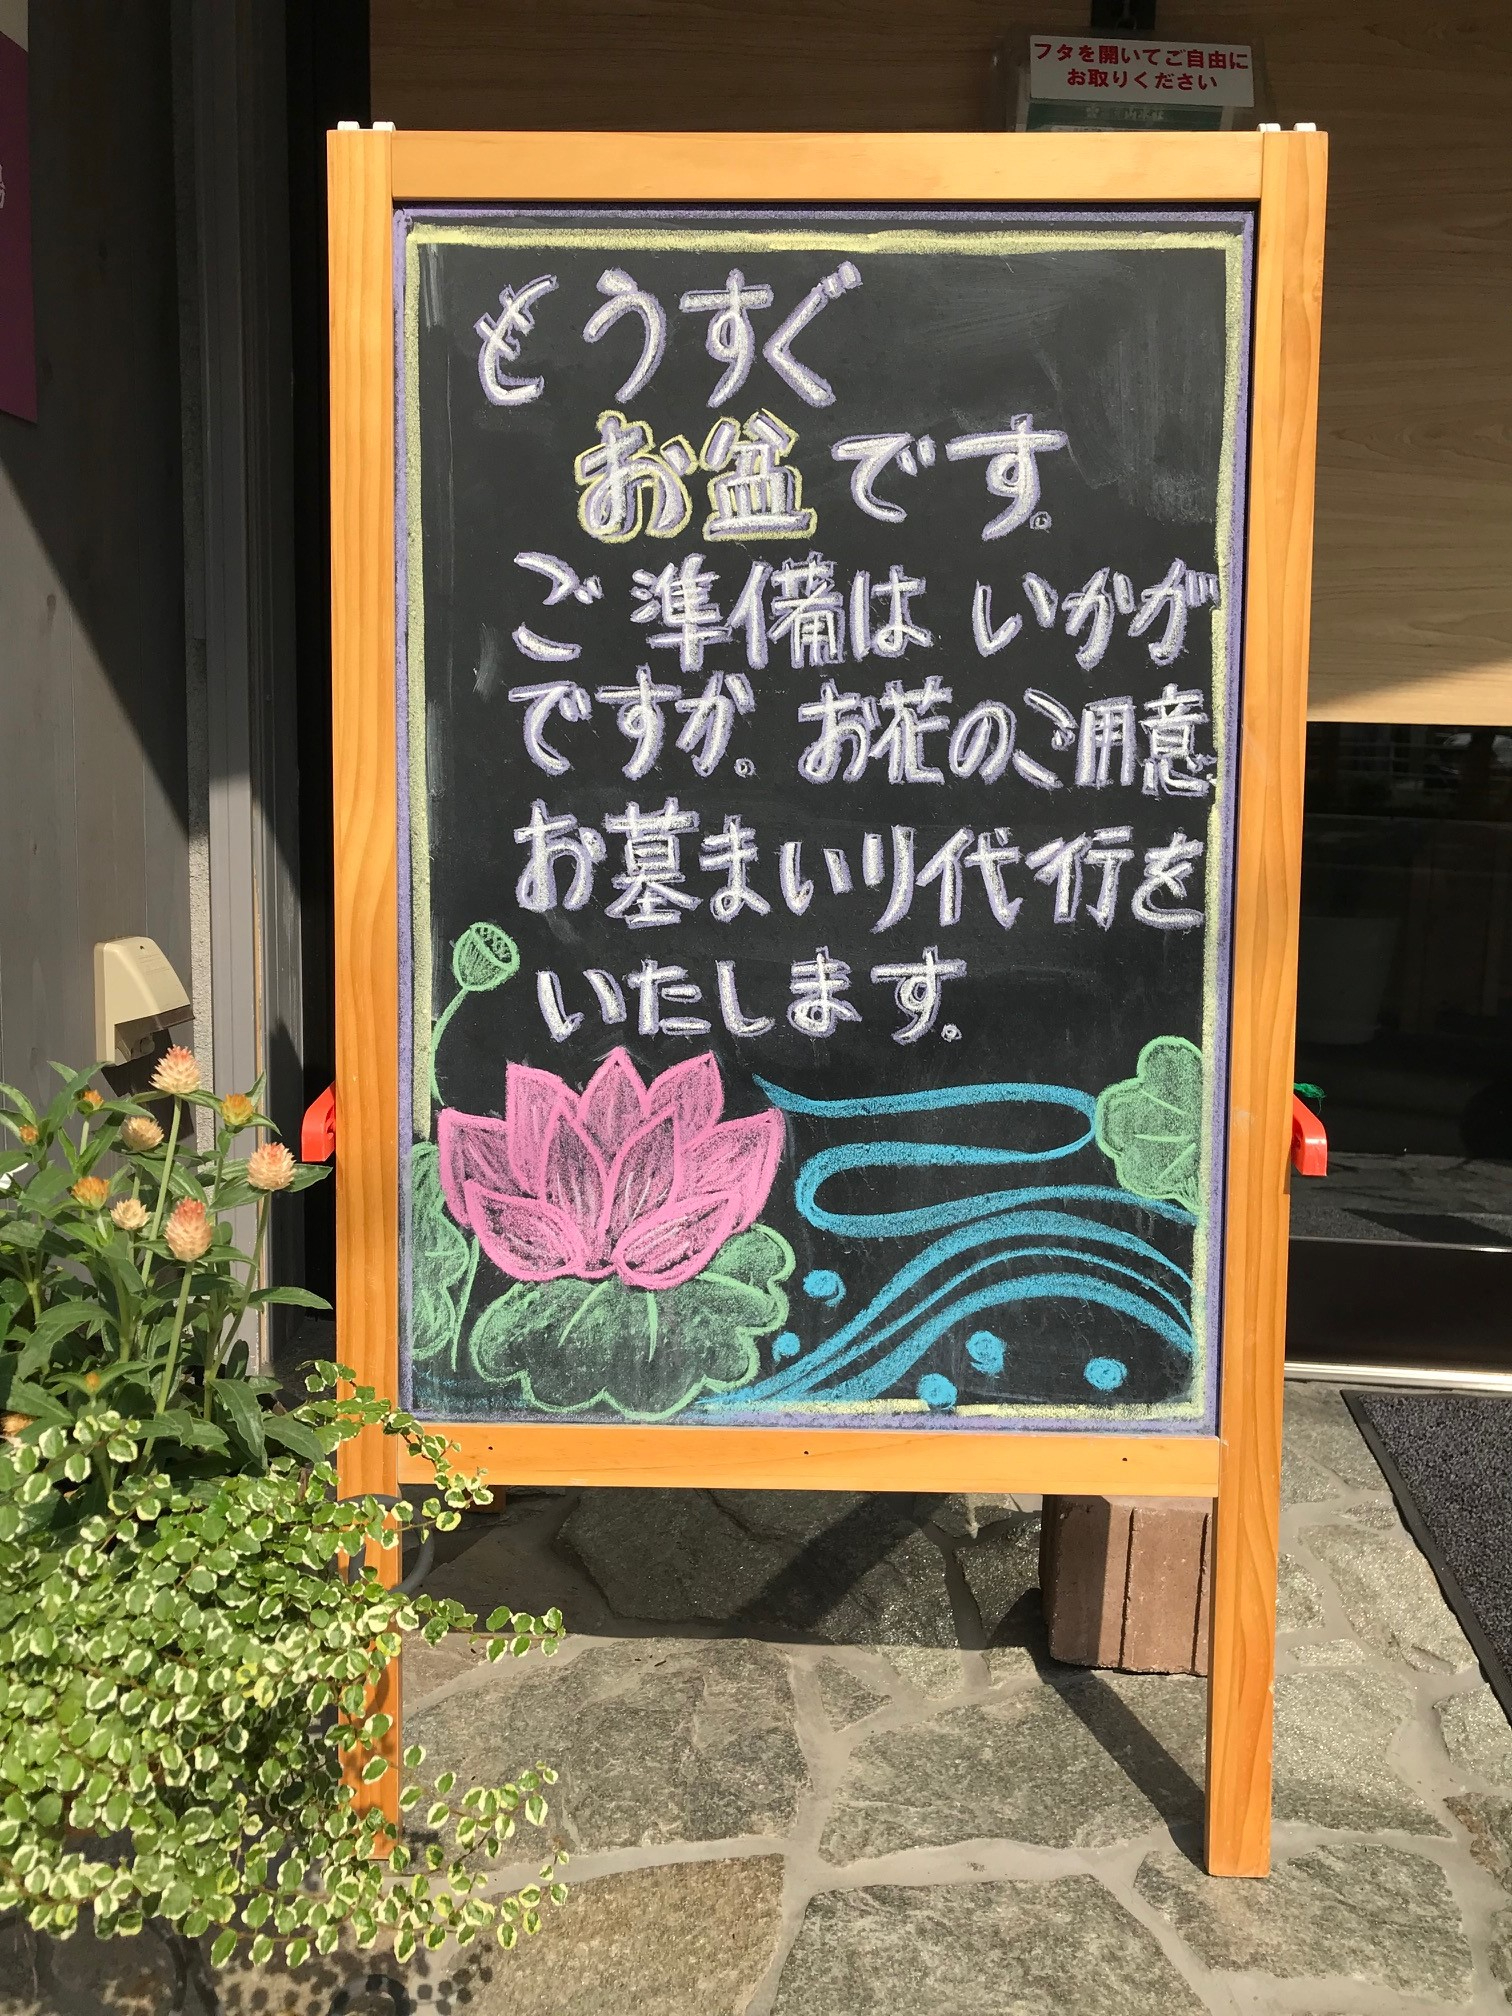 フタを開いてご自由に
お取りください
もうすぐ
お盆です。
ご準備は いかが
ですか。お花のご用意
お墓まいり代行を
いたします。